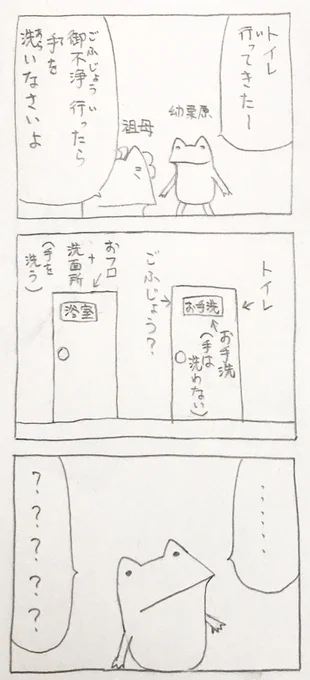 トイレ
行ってきたー
いってきたー
幼栗原
祖母
御不浄行ったら
ごふじょういったら
手を
洗いなさいよ
トイレ
お手洗
お手洗
(手は
洗わない)
ごふじょう?
おフロ
+
洗面所
(手を
洗う)
浴室
......
?????